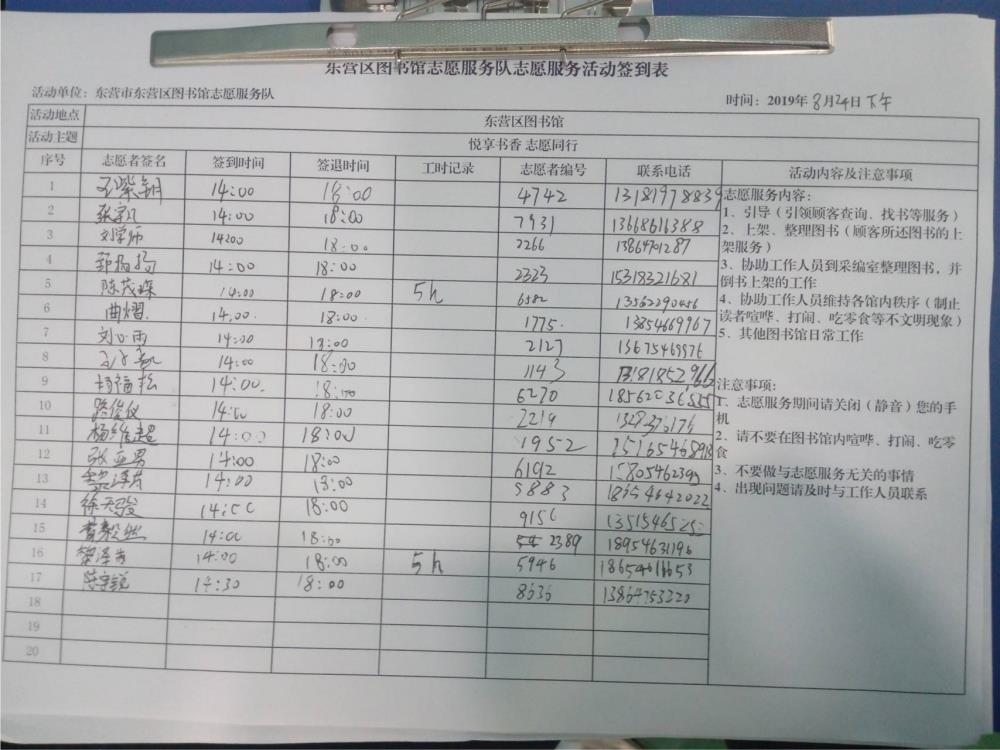 东营区图书馆志愿服务队志愿服务活动签到表
活动单位：东营市东营区图书馆志愿服务队 时间：2019年8月24日下午
活动地点 东营区图书馆
活动主题 悦享书香 志愿同行
序号 志愿者签名 签到时间 签退时间 工时记录 志愿者编号 联系电话 活动内容及注意事项
1 14:00 18:00 4742 13181978839
2 14:00 18:00 7931 13668616388
3 刘学师 1400 18:00 2266 13864701287
4 14:00 18:00 2323 15318321681
5 陈茂森 14:00 18:00 5h 6582 13562290456
6 曲熠 14:00 18:00 1775 13854669967
7 刘心雨 14:00 18:00 2127
8 14:00 18:00 1143
9 杨福松 14:00 18:00 6270
10 18:00 2219
11 杨维超 14:00 18:00 1952
12 张亚男 14:00 18:00 6192
13 14:00 18:00 5883 18654642022
14 徐天骏 18:00
15 14:00 18:00 2389 18954631196
16 14:00 18:00 5h 5946
17 14:30 18:00 8636 13864753220
18
19
20
志愿服务内容：
1、引导（引领顾客查询、找书等服务）
2、上架、整理图书（顾客所还图书的上
架服务）
3、协助工作人员到采编室整理图书，并
倒书上架的工作
4、协助工作人员维持各馆内秩序（制止
读者喧哗、打闹、吃零食等不文明现象）
5、其他图书馆日常工作
注意事项：
1、志愿服务期间请关闭（静音）您的手
机
2、请不要在图书馆内喧哗、打闹、吃零
食
3、不要做与志愿服务无关的事情
4、出现问题请及时与工作人员联系